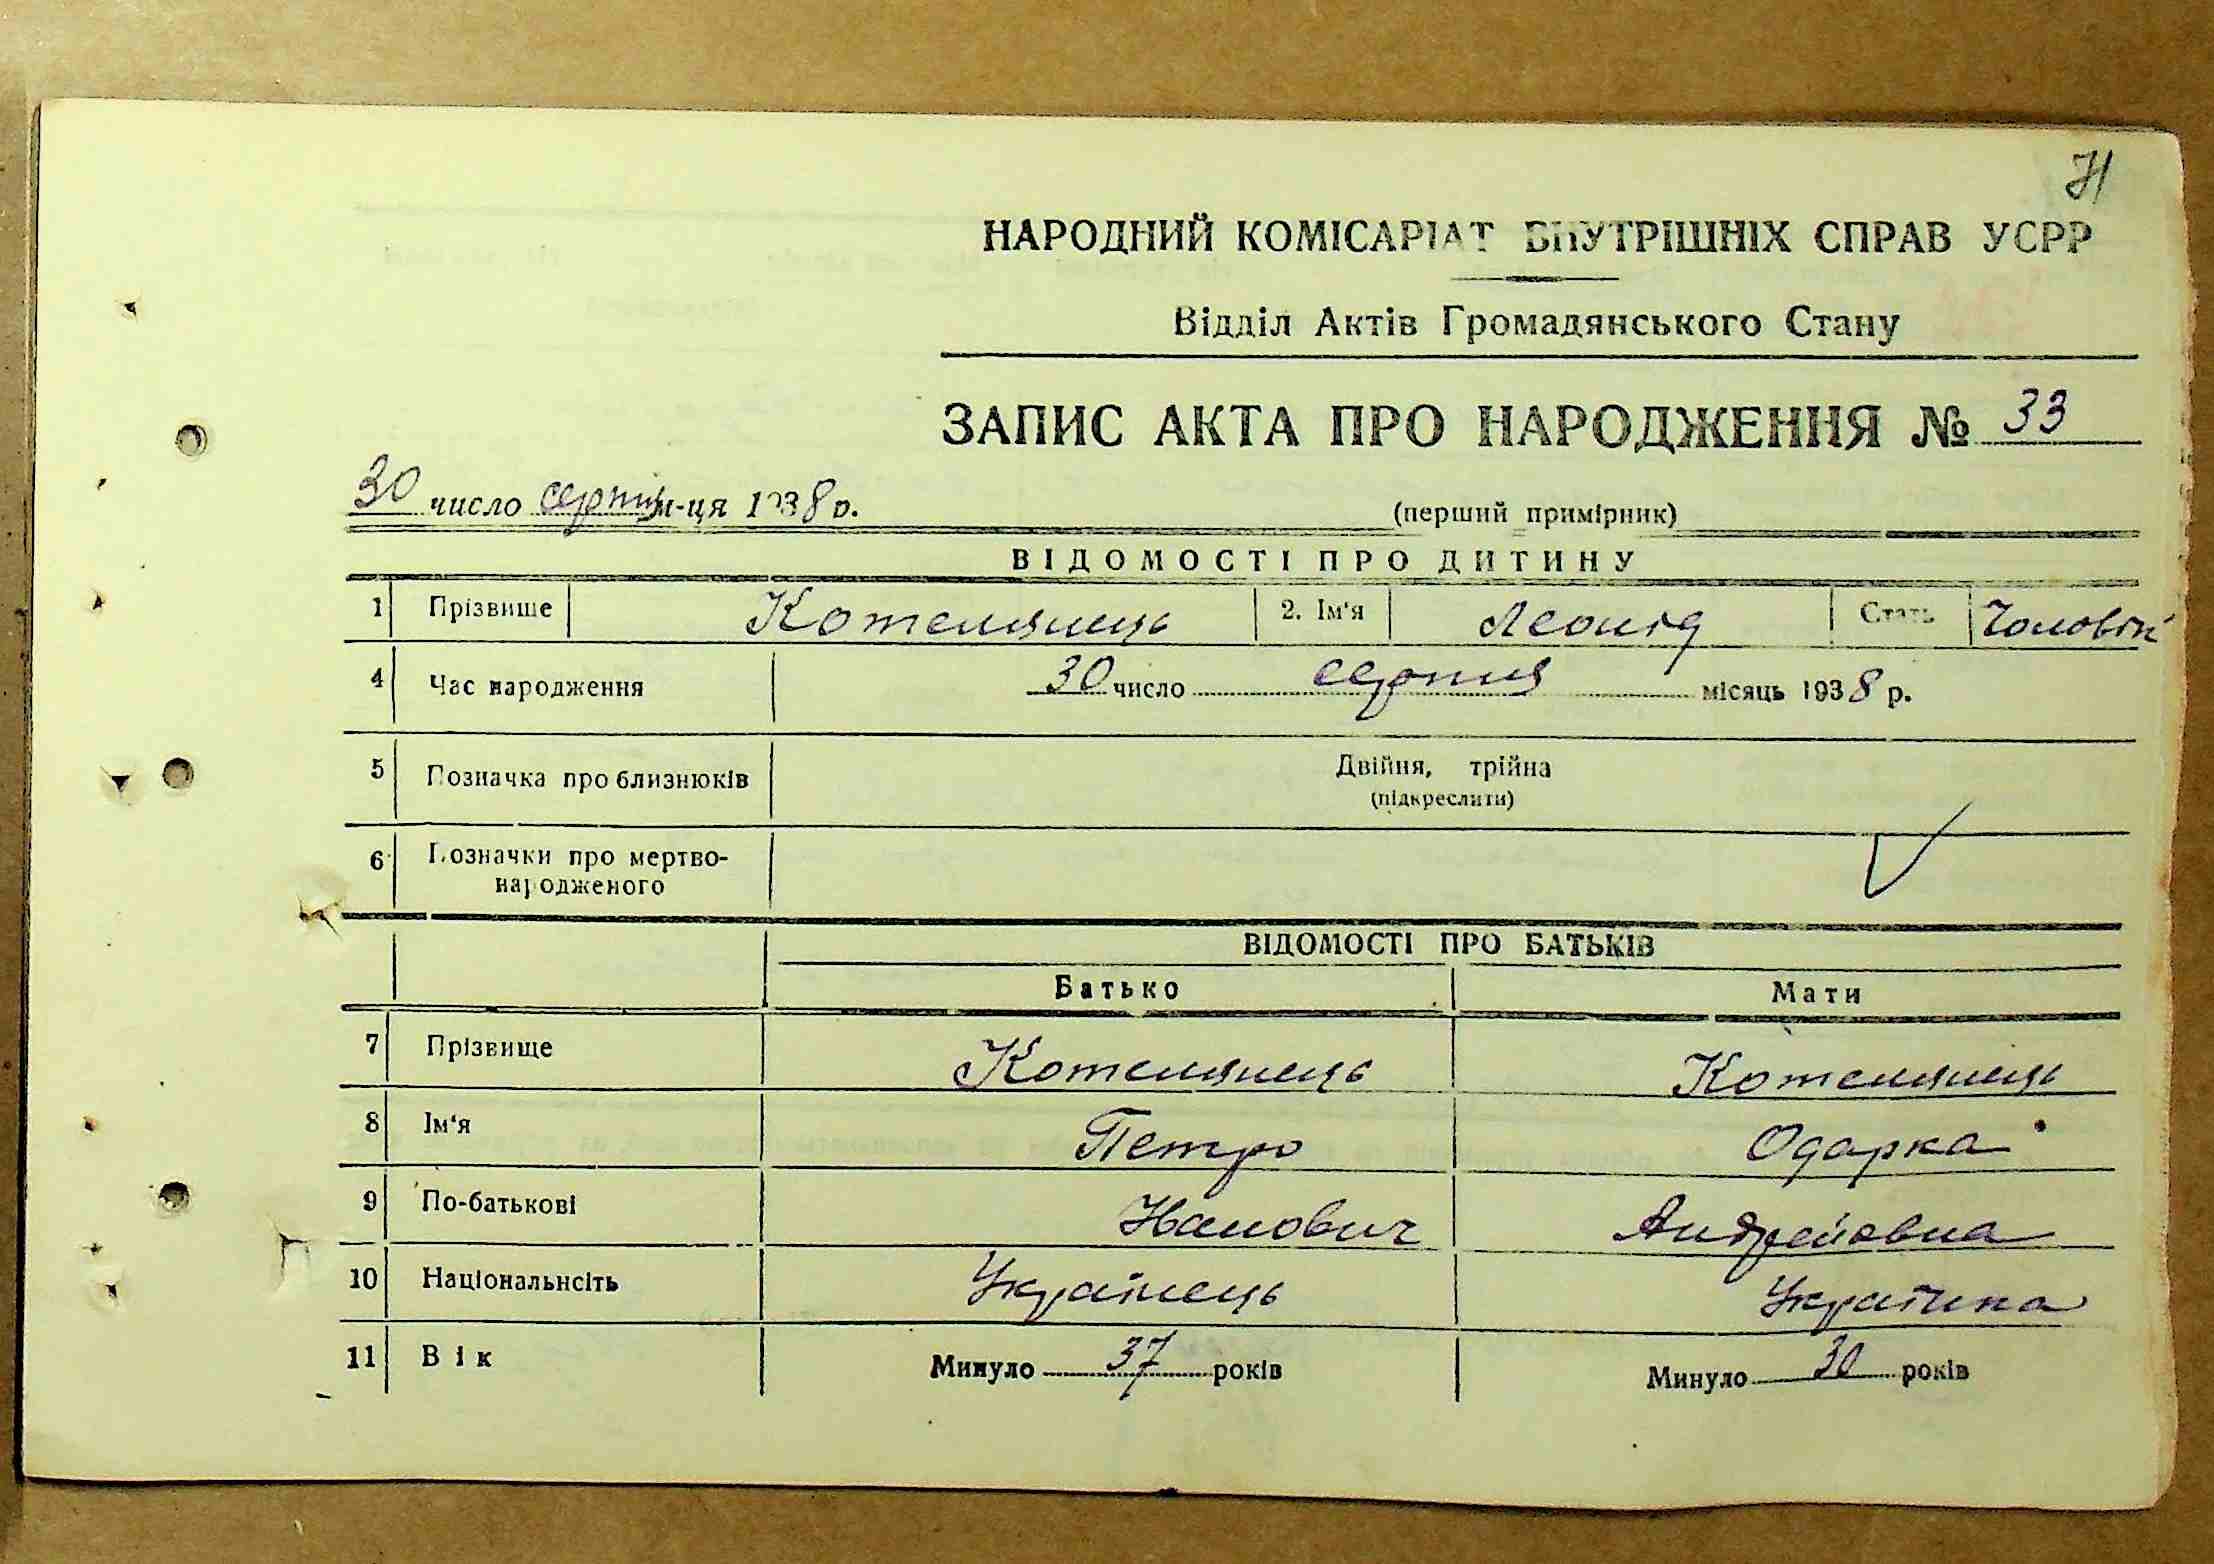 71
НАРОДНИЙ КОМІСАРІАТ ВНУТРІШНІХ СПРАВ УСРР
Відділ Актів Громадянського Стану
ЗАПИС АКТА ПРО НАРОДЖЕННЯ № 33
30 число серпня м-ця 1938 р.
(перший примірник)
ВІДОМОСТІ ПРО ДИТИНУ
1 Прізвище Котелянець 2. Ім'я Леонід Стать Чоловік
4 Час народження 30 число серпня місяць 1938 р.
5 Позначка про близнюків Двійня, трійна
(підкреслити)
6 Позначки про мертво-
народженого
ВІДОМОСТІ ПРО БАТЬКІВ
Батько Мати
7 Прізвище Котелянець Котелянець
8 Ім'я Петро Одарка
9 По-батькові Іванович Андреївна
10 Національнсіть Українець Українка
11 Вік Минуло 37 років Минуло 30 років